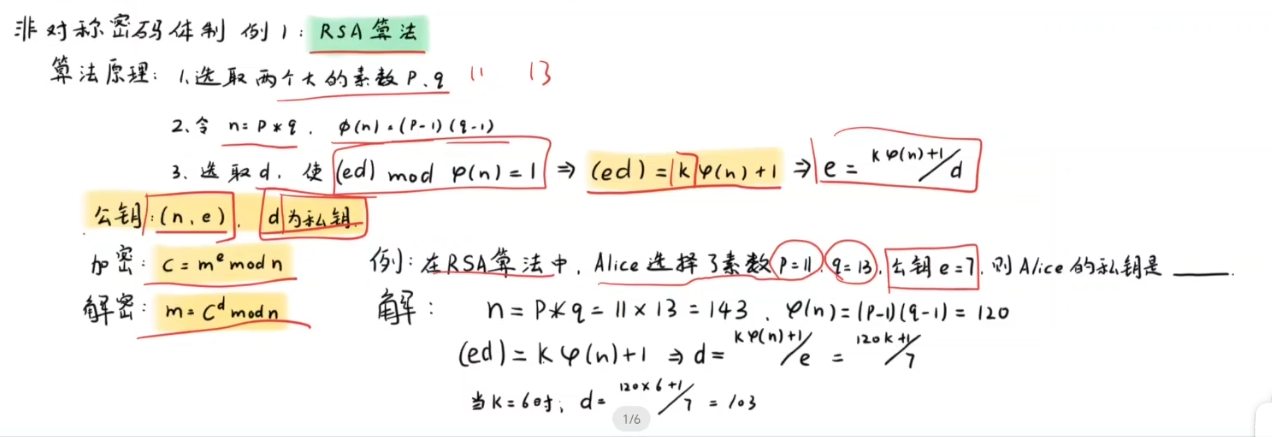 非对称密码体制 例1: RSA算法
算法原理: 1.选取两个大的素数P、q 11 13
2.令 n=P*q, φ(n)=(P-1)(q-1)
3.选取d, 使(ed) mod φ(n)=1 ⇒ (ed)=kφ(n)+1 ⇒ e=kφ(n)+1/d
公钥:(n,e), d为私钥.
加密: C=m^e mod n
解密: m=C^d mod n
例:在RSA算法中, Alice选择了素数P=11, q=13, 公钥e=7, 则Alice的私钥是 ____.
解: n=P*q=11×13=143, φ(n)=(P-1)(q-1)=120
(ed)=kφ(n)+1 ⇒ d=kφ(n)+1/e = 120k+1/7
当K=6时, d=120×6+1/7=103
1/6